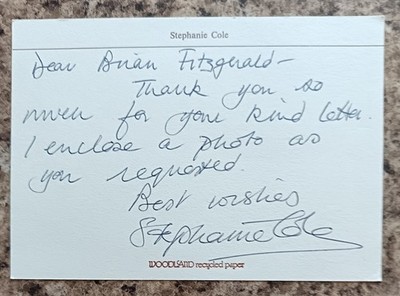 Stephanie Cole
Dear Brian Fitzgerald-
Thank you so
much for your kind letter.
I enclose a photo as
you requested.
Best wishes
Stephanie Cole
WOODLAND recycled paper